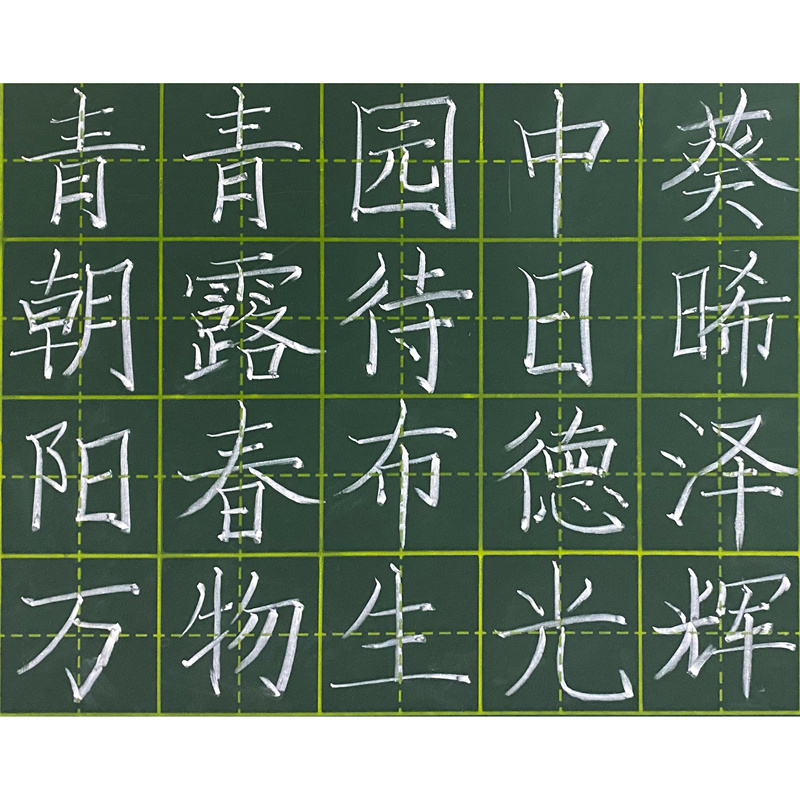 青青园中葵
朝露待日晞
阳春布德泽
万物生光辉